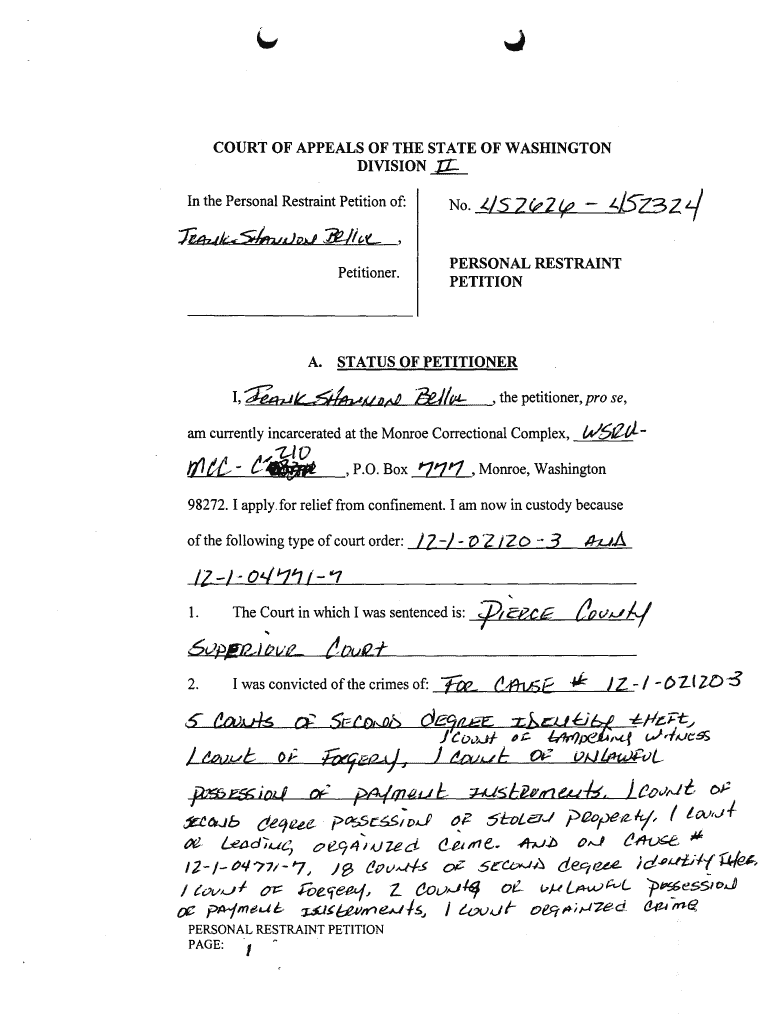 COURT OF APPEALS OF THE STATE OF WASHINGTON
DIVISION II
In the Personal Restraint Petition of:
Frank Shannon Bellue,
Petitioner.
No. 452626 - 452324
PERSONAL RESTRAINT
PETITION
A. STATUS OF PETITIONER
I, Frank Shannon Bellue, the petitioner, pro se,
am currently incarcerated at the Monroe Correctional Complex, WSRU-
210
MCC - C, P.O. Box 777, Monroe, Washington
98272. I apply for relief from confinement. I am now in custody because
of the following type of court order: 12-1-02120-3 AND
12-1-04771-7
1. The Court in which I was sentenced is: PIERCE County
SUPERIOUR Court
2. I was convicted of the crimes of: FOR CAUSE # 12-1-02120-3
5 Counts OF SECOND DEGREE IDENTITY THEFT,
1 Count OF tAMPERING WITNESS
1 Count OF FORGERY, 1 Count OF UNLAWFUL
POSSESSION OF PAYMENT INSTRUMENTS, 1 COUNT OF
SECOND degree POSSESSION OF STOLEN PROPERTY, 1 Count
OF LEADING ORGAINIZED CRIME. AND ON CAUSE #
12-1-04771-7, 18 Counts OF SECOND degree identity
1 Count OF FORGERY, 2 Counts OF UNLAWFUL POSSESSION
OF PAYMENT INSTRUMENTS, 1 COUNT ORGAINIZED CRIME
PERSONAL RESTRAINT PETITION
PAGE: 1